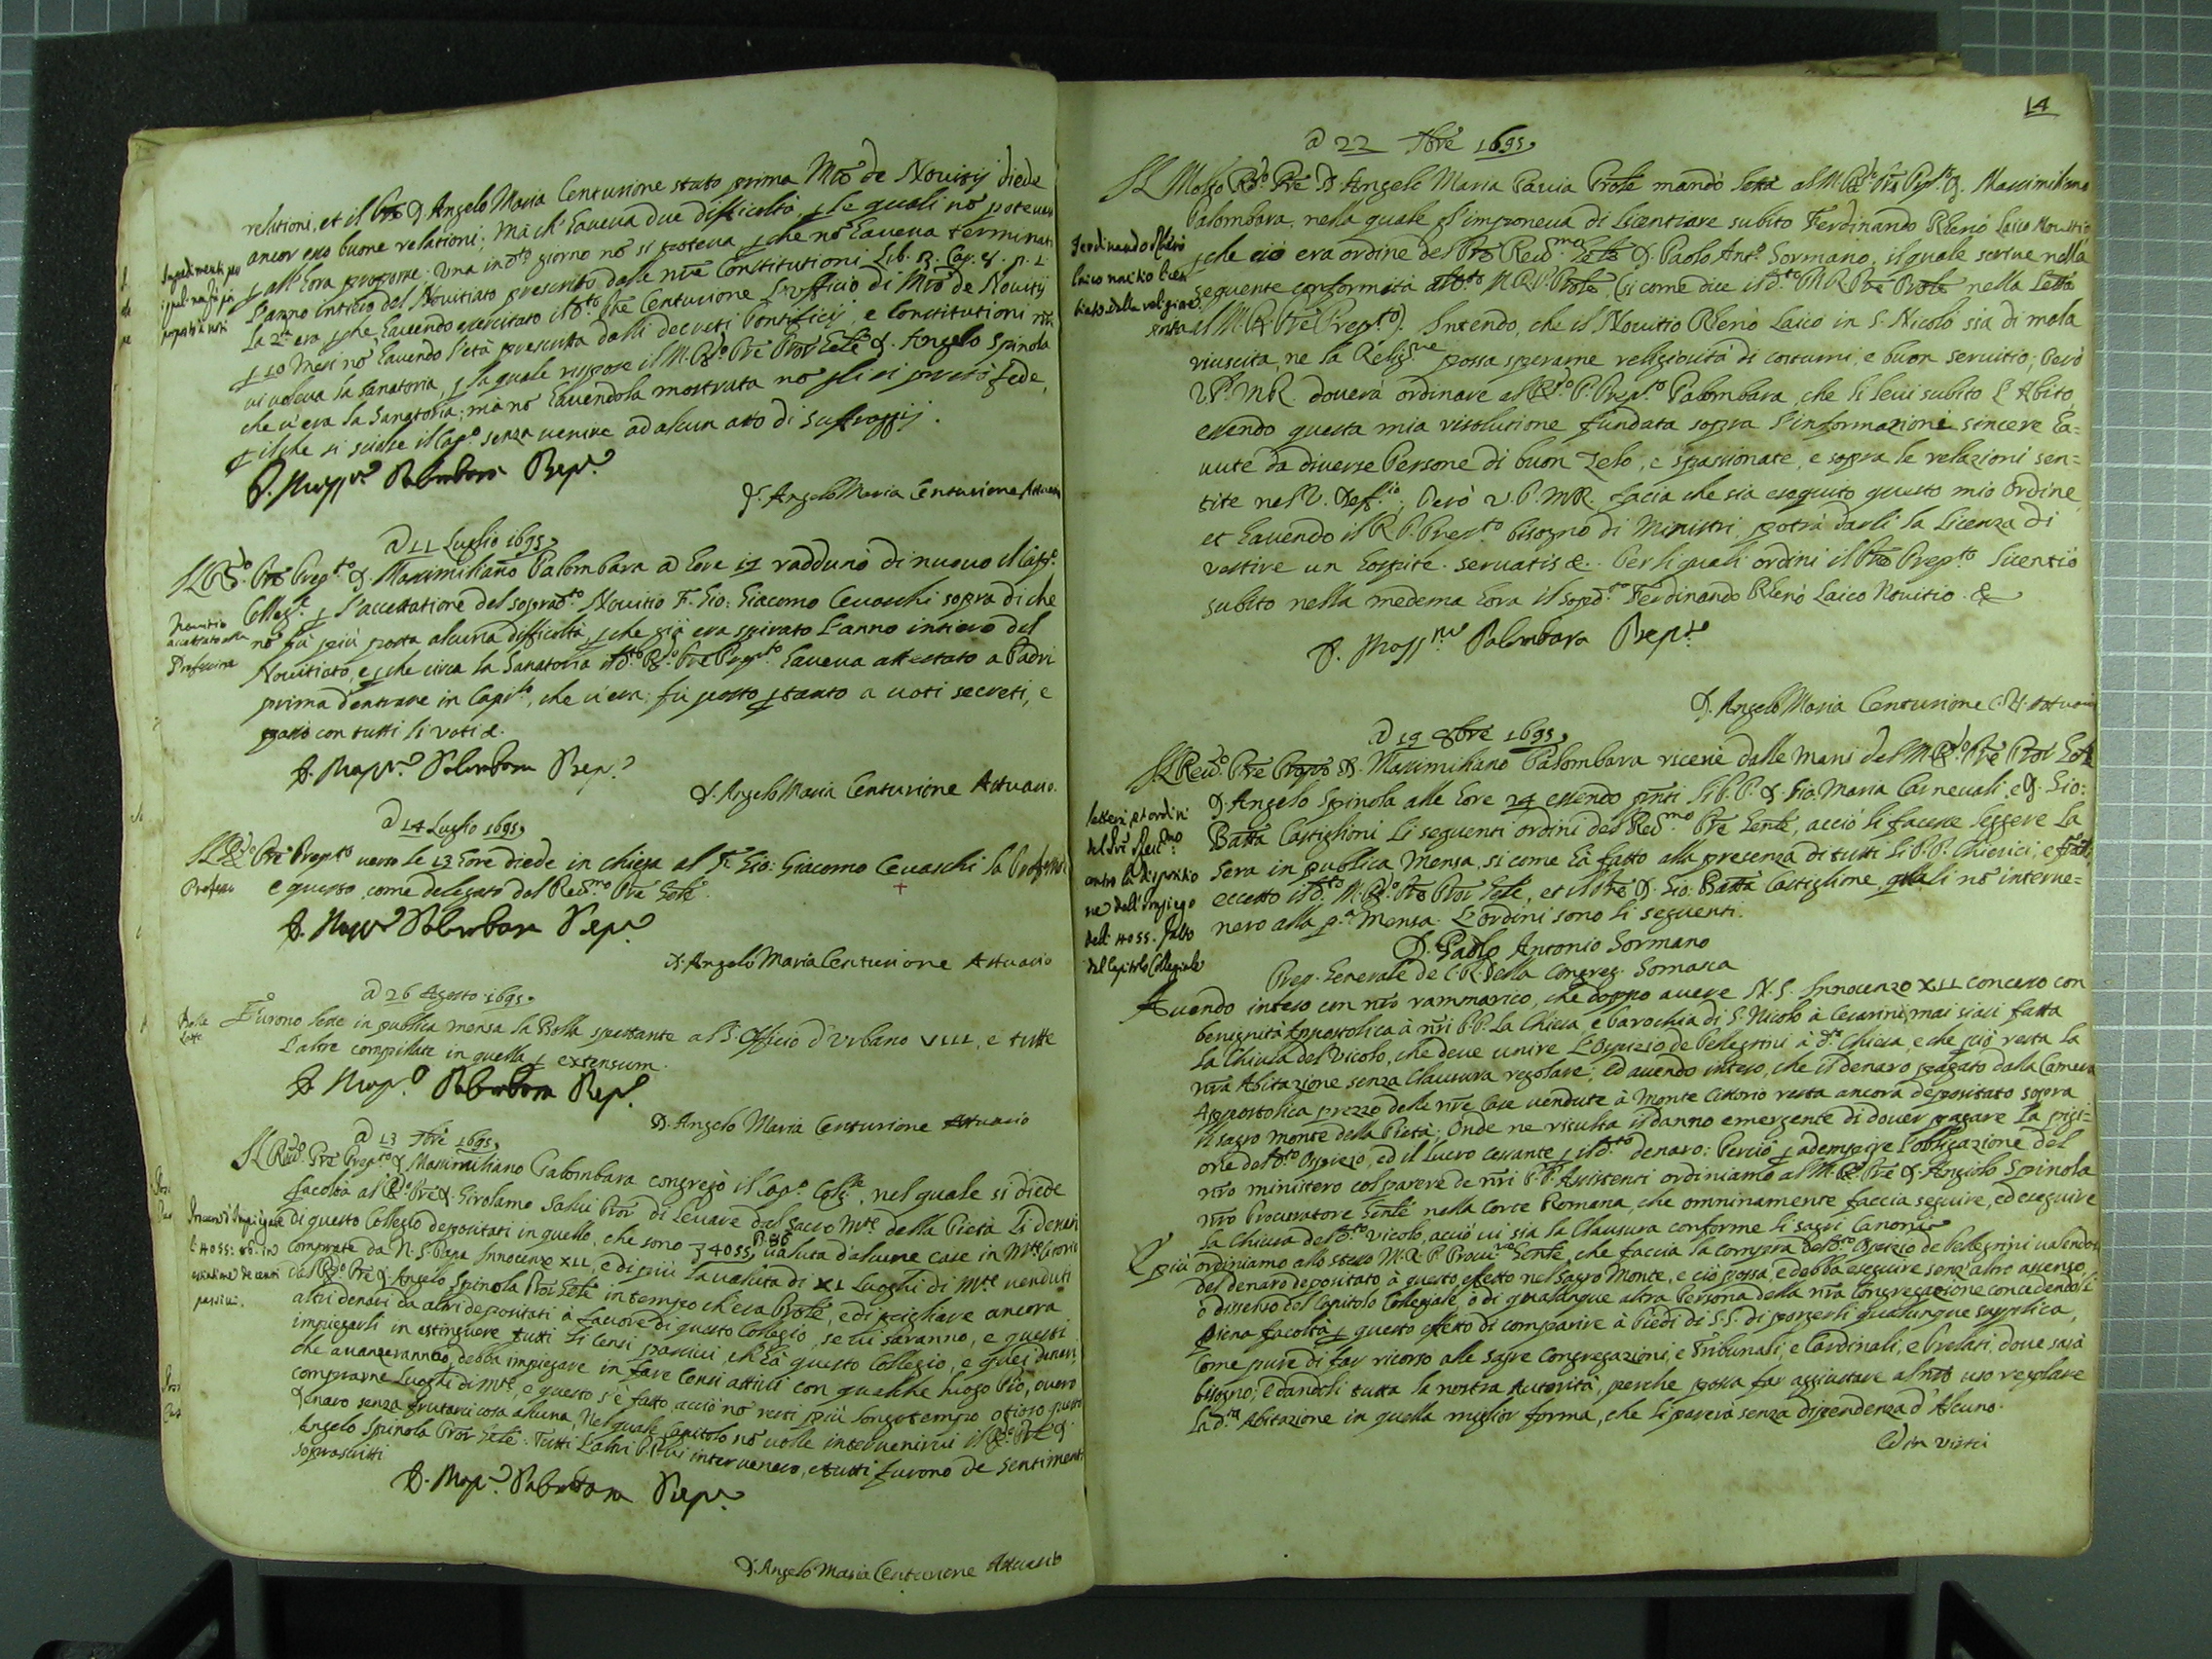 relationi, et il Pre D. Angelo Maria Centurione stato prima Mro de Novitij diede
ancor esso buone relationi; mà ch'haveva due difficoltà, p le quali nō poteva
p all'hora proporre. Una in d.to giorno nō si poteva, p che nō haveva terminati
l'anno intiero del Novitiato prescritto dalle nre Constitutioni Lib. 3. Cap.
La 2.a era p che havendo esercitato il d.to Pre Centurione l'ufficio di Mro de Novitij
p 10 Mesi nō havendo l'età prescritta dalli decreti Pontificij, e Constitutioni nre
vi voleva la sanatoria, p la quale rispose il M. R.do Pre Pror Gnle D. Angelo Spinola
che v'era la Sanatoria; mà nō havendola mostrata nō gli si prestò fede,
p il che si sciolse il Cap.o senza venire ad alcun atto di suffragij.
Impedimenti per
D. Mass.o Palombara Prep.o
D. Angelo Maria Centurione Attuario
a 11 Luglio 1695.
Il R.do Pre Prep.to D. Massimiliano Palombara a hore 19 radduno di nuovo il Cap.o
Novitio
accettato alla
Professione
Colleg.e p l'accettatione del soprad.to Novitio F. Gio: Giacomo Cevaschi sopra di che
nō fù più posta alcuna difficoltà, p che già era spirato l'anno intiero del
Novitiato, e p che circa la Sanatoria il d.to R.do Pre Prep.to haveva attestato a Padri
prima d'entrare in Capit.o, che v'era; fù posto p tanto a voti secreti, e
passò con tutti li voti &.
D. Mass.o Palombara Prep.o
D. Angelo Maria Centurione Attuario.
a 14 Luglio 1695.
Il R.do Pre Prep.to verso le 13 hore diede in chiesa al F. Gio: Giacomo Cevaschi la Professione
Profess.
e questo come delegato dal Rev.mo Pre Gnle.
D. Mass.o Palombara Prep.o
D. Angelo Maria Centurione Attuario
a 26 Agosto 1695.
Bolle
Lette
Furono lette in publica mensa la Bolla spettante al S. Officio d'Urbano VIII, e tutte
l'altre compilate in quella p extensum.
D. Mass.o Palombara Prep.o
D. Angelo Maria Centurione Attuario
a 13 7bre 1695.
Il Rev.do Pre Prep.to D. Massimiliano Palombara congregò il Cap.o Coll.le, nel quale si diede
facoltà al R.do Pre D. Girolamo Salvi Pror di levare dal sacro Mte della Pietà li denari
di questo Collegio depositati in quello, che sono 34055. 86 valuta d'alcune case in Mte Citorio
comprate da N. S. Papa Innocenzo XII, e di più la valuta di XI Luoghi di Mte venduti
dal R.do Pre D. Angelo Spinola Pror Gnle in tempo ch'era Prōle, e di pigliare ancora
altri denari da altri depositati à favore di questo Collegio, se vi saranno, e questi
impiegarli in estinguere tutti li Censi passivi, ch'hà questo Collegio, e quei denari,
che avanzeranno, debba impiegare in fare Censi attivi con qualche luogo Pio, overo
comprarne Luoghi di Mte, e questo s'è fatto, acciò nō resti più longo tempo otioso questo
denaro senza fruttarci cosa alcuna, Nel quale Capitolo nō volle intervenirvi il R.do Pre D.
Angelo Spinola Pror Gnle. Tutti l'altri PP. vi intervenero, e tutti furono de sentimenti
soprascritti
D. Mass.o Palombara Prep.o
D. Angelo Maria Centurione Attuario
14
a 22 7bre 1695.
Il Molto R.do Pre D. Angelo Maria Pavia Prōle mandò lettā al M. R.do Pre Prep.to D. Massimiliano
Palombara, nella quale l'imponeva di licentiare subito Ferdinando Rhenò Laico Novitio
Ferdinando Rhenò
laico novitio licen
tiato dalla religione
p che ciò era ordine del Pre Rev.mo Gnle D. Paolo Ant.o Sormano, il quale scrive nella
seguente conformità al d.to M. R. P. Prōle (si come dice il d.to M. R. Pre Prōle nella Lettā
scritta al M. R. Pre Prep.to). Intendo, che il Novitio Rhenò Laico in S. Nicolò sia di mala
riuscita, ne la Relig.ne possa sperarne religiosità di costumi, e buon servitio; Però
V. P. M. R. doverà ordinare al R.do P. Prep.to Palombara, che li levi subito l'Abito,
essendo questa mia risolutione fundata sopra l'informazioni sincere ha=
vute da diverse Persone di buon Zelo, e spassionate, e sopra le relazioni sen=
tite nel V. Deff.io; Però V. P. M. R. facia che sia eseguito questo mio ordine
et havendo il R. P. Prep.to bisogno di Ministri, potrà darli la Licenza di
vestire un hospite. servatis &. Per li quali ordini il Pre Prep.to licentiò
subito nella medema hora il sopd.to Ferdinando Rhenò Laico Novitio. &
D. Mass.no Palombara Prep.to
D. Angelo Maria Centurione C. R. Attuario
a 19 8bre 1695.
Il Rev.do Pre Prep.o D. Massimiliano Palombara ricevè dalle mani del M. R.do Pre Pror Gnle
D. Angelo Spinola alle hore 24 essendo pnti li P.P. D. Gio: Maria Carnevali, e D. Gio:
Battā Castiglioni li seguenti ordini del Rev.mo Pre Gnle, acciò li facesse leggere la
lettera et ordini
del Pre Rev.mo
contro la dispositio
ne dell'impiego
delli 4055. fatto
dal Capitolo Collegiale
sera in publica Mensa, si come hà fatto alla presenza di tutti li P.P. Chierici, e Fratelli,
eccetto il d.to M. R.do Pre Pror Gnle, et il Pre D. Gio: Battā Castiglione quali nō interve=
nero alla p.a Mensa. L'ordini sono li seguenti.
D. Paolo Antonio Sormano
Prep. Generale de C. R. della Congreg. Somasca
Avendo inteso con nro rammarico, che doppo avere N. S. Innocenzo XII concesso con
benignità Appostolica à nri P.P. la Chiesa, e Parochia di S. Nicolò à Cesarini, mai siasi fatta
la Chiusa del Vicolo, che deve unire l'Ospizio de Pellegrini à d.ta Chiesa, e che p ciò resta la
nra Abitazione senza Clausura regolare; Ed avendo inteso, che il denaro pagato dalla Camera
Appostolica prezzo delle nre Case vendute à Monte Citorio resta ancora depositato sopra
il sagro monte della Pietà; Onde ne risulta il danno emergente di dover pagare la pigi=
one del d.to Ospizio, ed il lucro cessante p il d.to denaro: Perciò p adempire l'obbligazione del
nro ministero col parere de nri P.P. Assistenti ordiniamo al M. R. Pre D. Angiolo Spinola
nro Procuratore Gnle nella Corte Romana, che omninamente faccia seguire, ed eseguire
la Chiusa del d.to Vicolo, acciò vi sia la Clausura conforme li sagri Canoni.
E più ordiniamo allo stesso M. R. P. Procu.re Gnle, che faccia la compra del d.to Ospizio de Pellegrini valendosi
del denaro depositato à questo effetto nel Sagro Monte, e ciò possa, e debba eseguire senz'altro assenso,
ò dissenso del Capitolo Collegiale, ò di qualunque altra Persona della nra Congregazione concedendoli
piena facoltà p questo effetto di comparire à Piedi di S. S. di porgerli qualunque supplica,
Come pure di far ricorso alle Sagre Congregazioni, e Tribunali, e Cardinali, e Prelati, dove sarà
bisogno; E dandoli tutta la nostra Autorità, perche possa far aggiustare al nro uso regolare
la d.ta Abitazione in quella miglior forma, che li parerà senza dipendenza d'Alcuno.
Ed in virtù